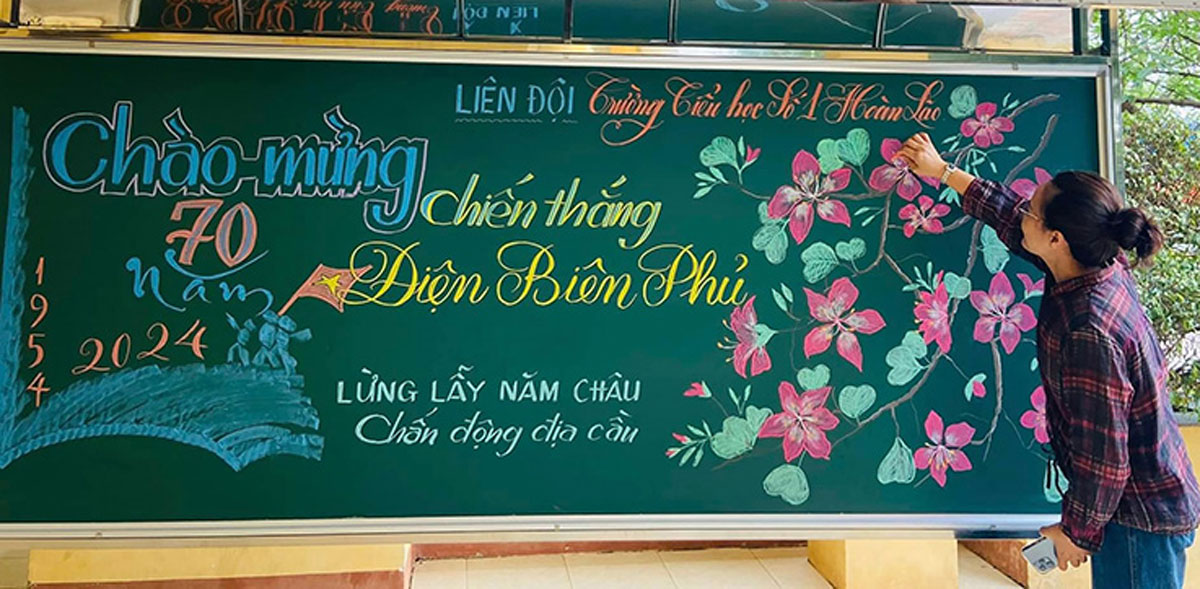 LIÊN ĐỘI
LIÊN ĐỘI Trường Tiểu học Số 1 Hoàn Lão
Chào mừng
70
Năm
1954
2024
chiến thắng
Điện Biên Phủ
LỪNG LẪY NĂM CHÂU
Chấn động địa cầu